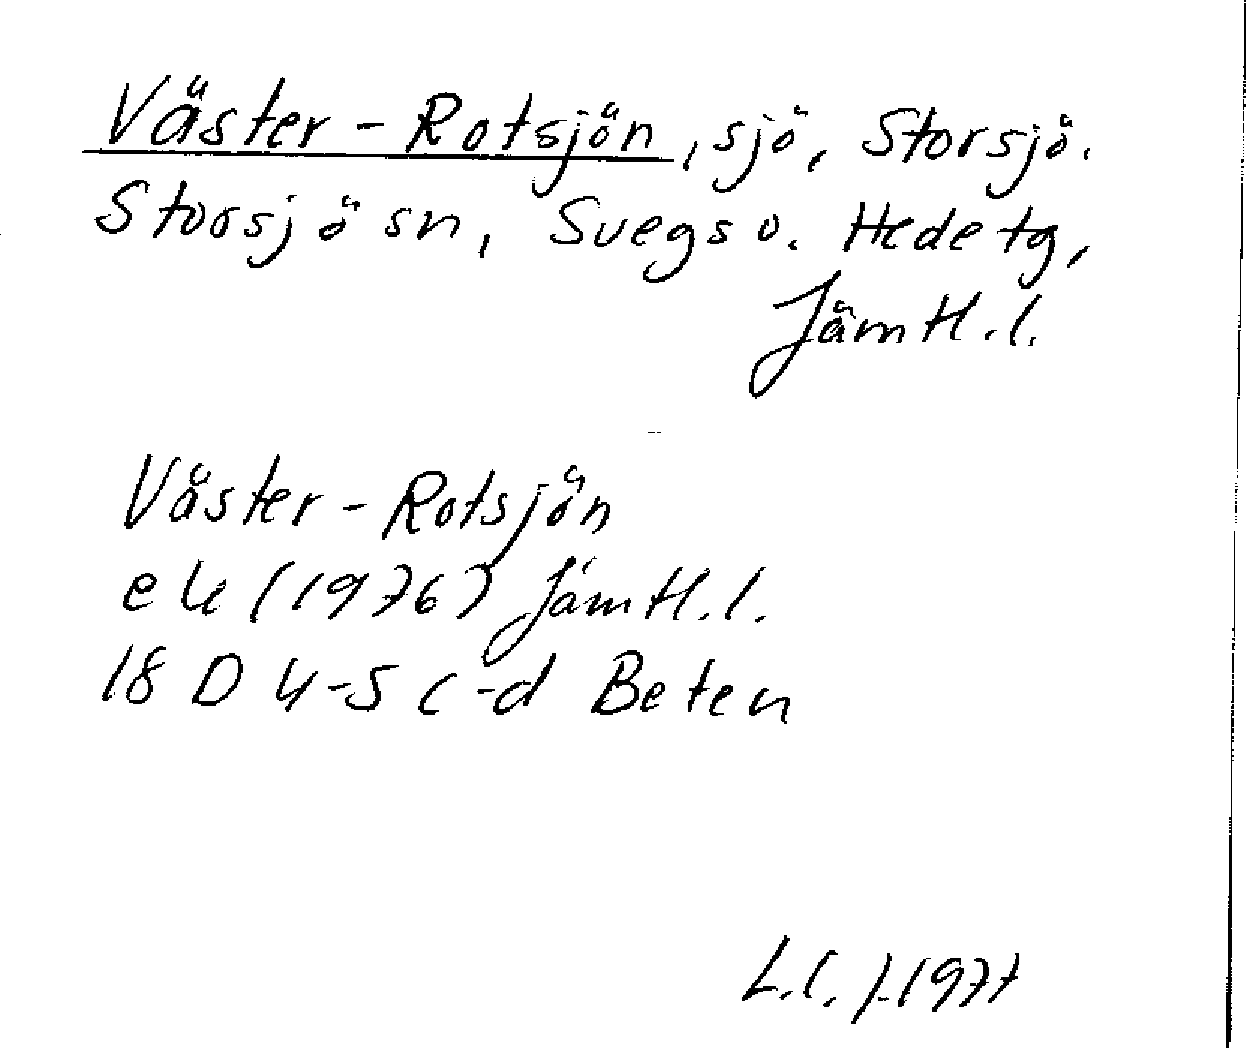 Väster-Rotsjön, sjö, Storsjö.
Storsjö sn, Svegs o. Hede tg,
Jämtl. l.
Väster-Rotsjön
ek (1976) Jämtl. l.
18 D 4-5 c-d Beten
L.l. 1977